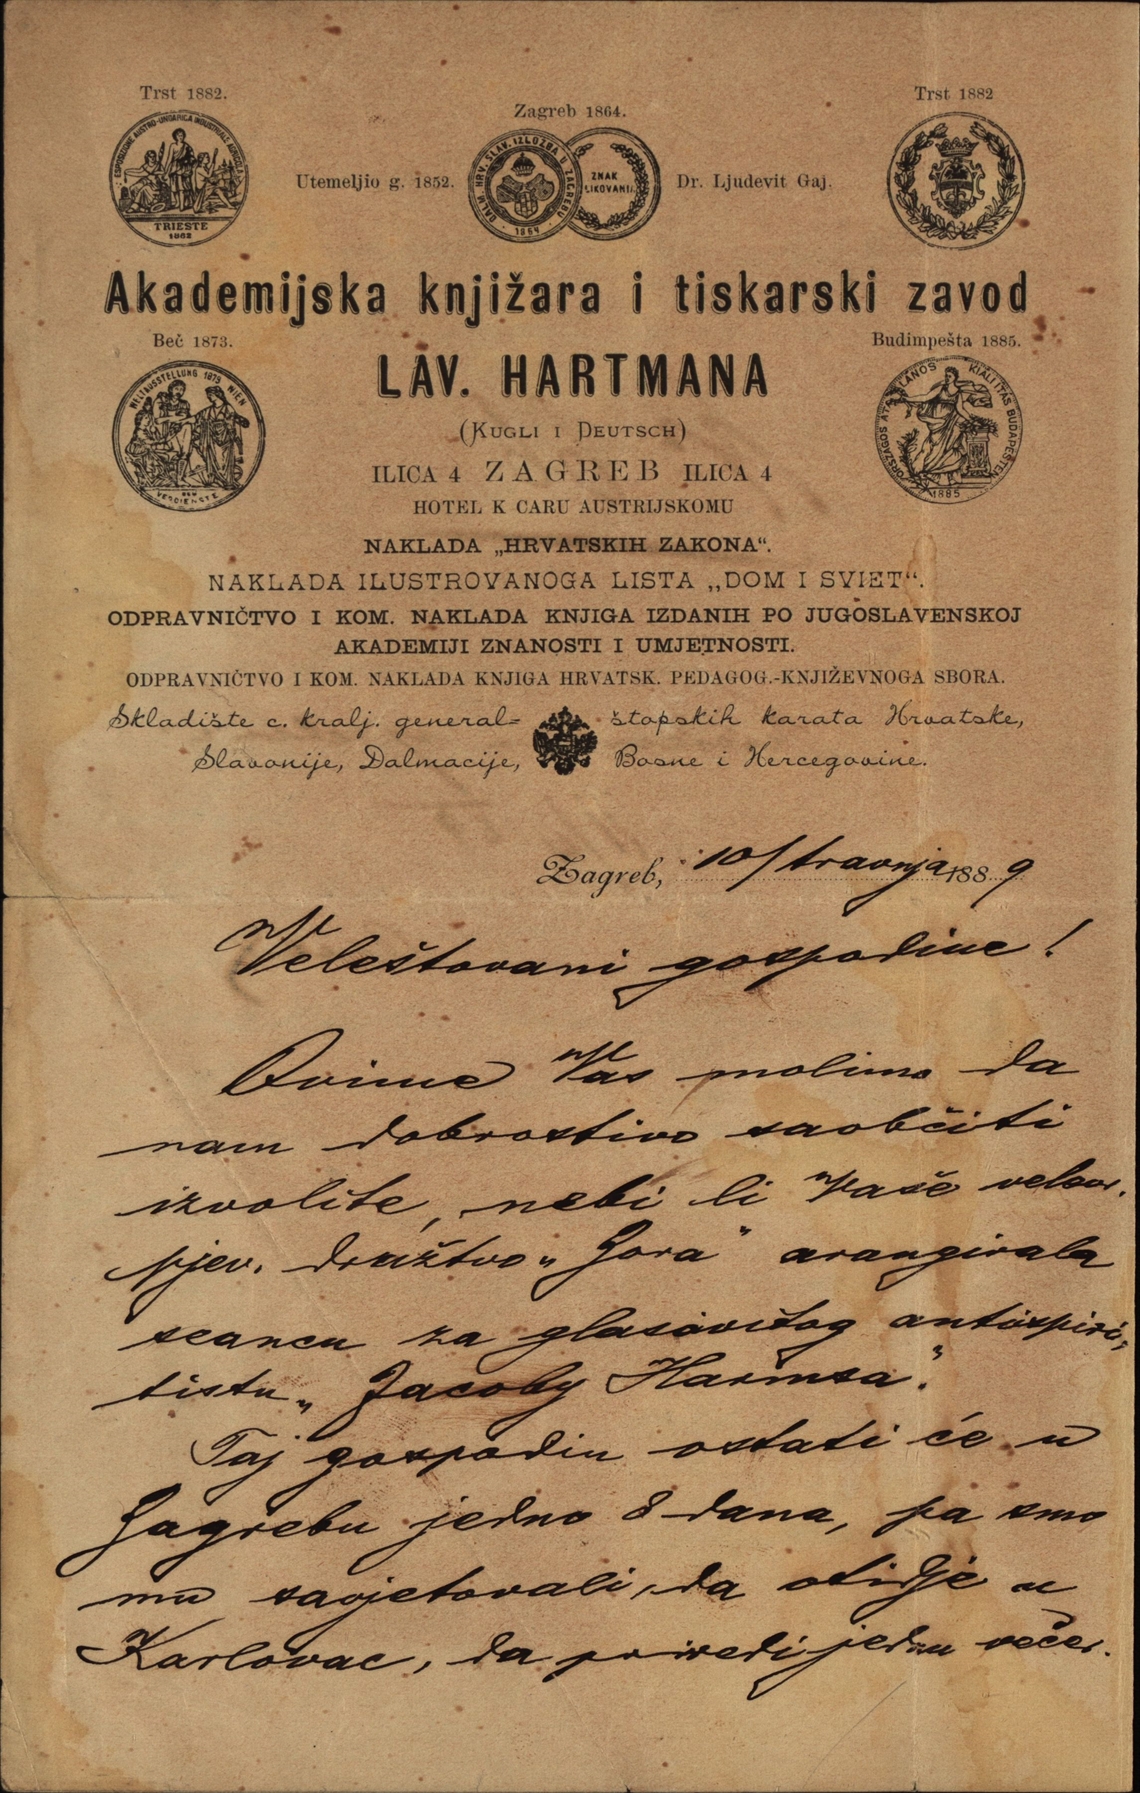 Trst 1882.
Zagreb 1864.
Trst 1882
ESPOSIZIONE AUSTRO-UNGARICA INDUSTRIALE AGRICOLA
TRIESTE
1882
Utemeljio g. 1852.
DALM. HRV. SLAV. IZLOŽBA U ZAGREBU
1864
ZNAK
Dr. Ljudevit Gaj.
Akademijska knjižara i tiskarski zavod
Beč 1873.
Budimpešta 1885.
LAV. HARTMANA
WELTAUSSTELLUNG 1873 WIEN
DEM
VERDIENSTE
ORSZÁGOS ÁLTALÁNOS KIÁLLÍTÁS BUDAPESTEN
1885
(KUGLI I DEUTSCH)
ILICA 4 ZAGREB ILICA 4
HOTEL K CARU AUSTRIJSKOMU
NAKLADA „HRVATSKIH ZAKONA“.
NAKLADA ILUSTROVANOGA LISTA „DOM I SVIET“.
ODPRAVNIČTVO I KOM. NAKLADA KNJIGA IZDANIH PO JUGOSLAVENSKOJ
AKADEMIJI ZNANOSTI I UMJETNOSTI.
ODPRAVNIČTVO I KOM. NAKLADA KNJIGA HRVATSK. PEDAGOG.-KNJIŽEVNOGA SBORA.
Skladište c. kralj. general= štopskih karata Hrvatske,
Slavonije, Dalmacije, Bosne i Hercegovine.
Zagreb, 10/travnja 1889
Veleštovani gospodine!
Ovime Vas molimo da
nam dobrostivo saobčiti
izvolite, nebi li Vaše
pjev. družtvo „Zora“ arangirala
seancu za glasovitog antispiri„
tistu „Jacoby Harmsa“.
Taj gospodin ostati će u
Zagrebu jedno 8 dana, pa smo
mu savjetovali, da otidje u
Karlovac, da priredi jednu večer.